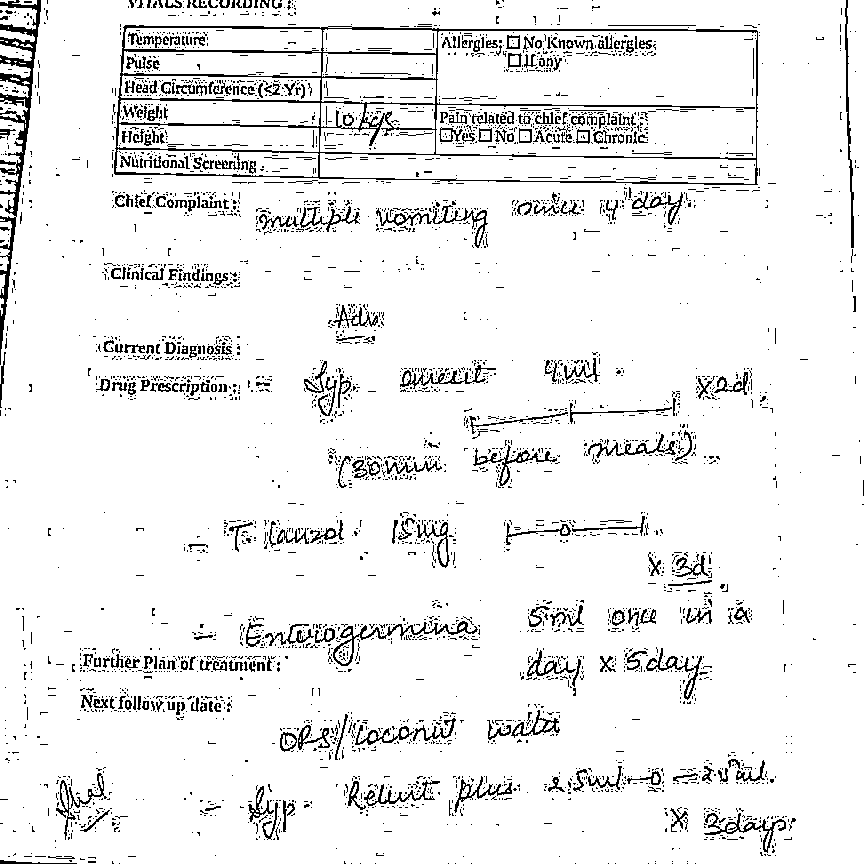 VITALS RECORDING :
Temperature
Allergies: ☐ No Known allergies
Pulse
☐ If any
Head Circumference (<2 Yr)
Weight 10 kgs
Pain related to chief complaint :
Height
☐ Yes ☐ No ☐ Acute ☐ Chronic
Nutritional Screening
Chief Complaint : multiple vomiting since 4 day.
Clinical Findings :
Adv
Current Diagnosis :
Drug Prescription : - Syp. 4ml. x2d
(30min before meals)
- T. Lanzol. 15mg 1-0-1
x 3d.
- Enterogermina 5ml once in a
Further Plan of treatment : day x 5day
Next follow up date :
ORS/Coconut water
- Syp. Relent plus 2.5ml-0-2.5ml.
x 3days.